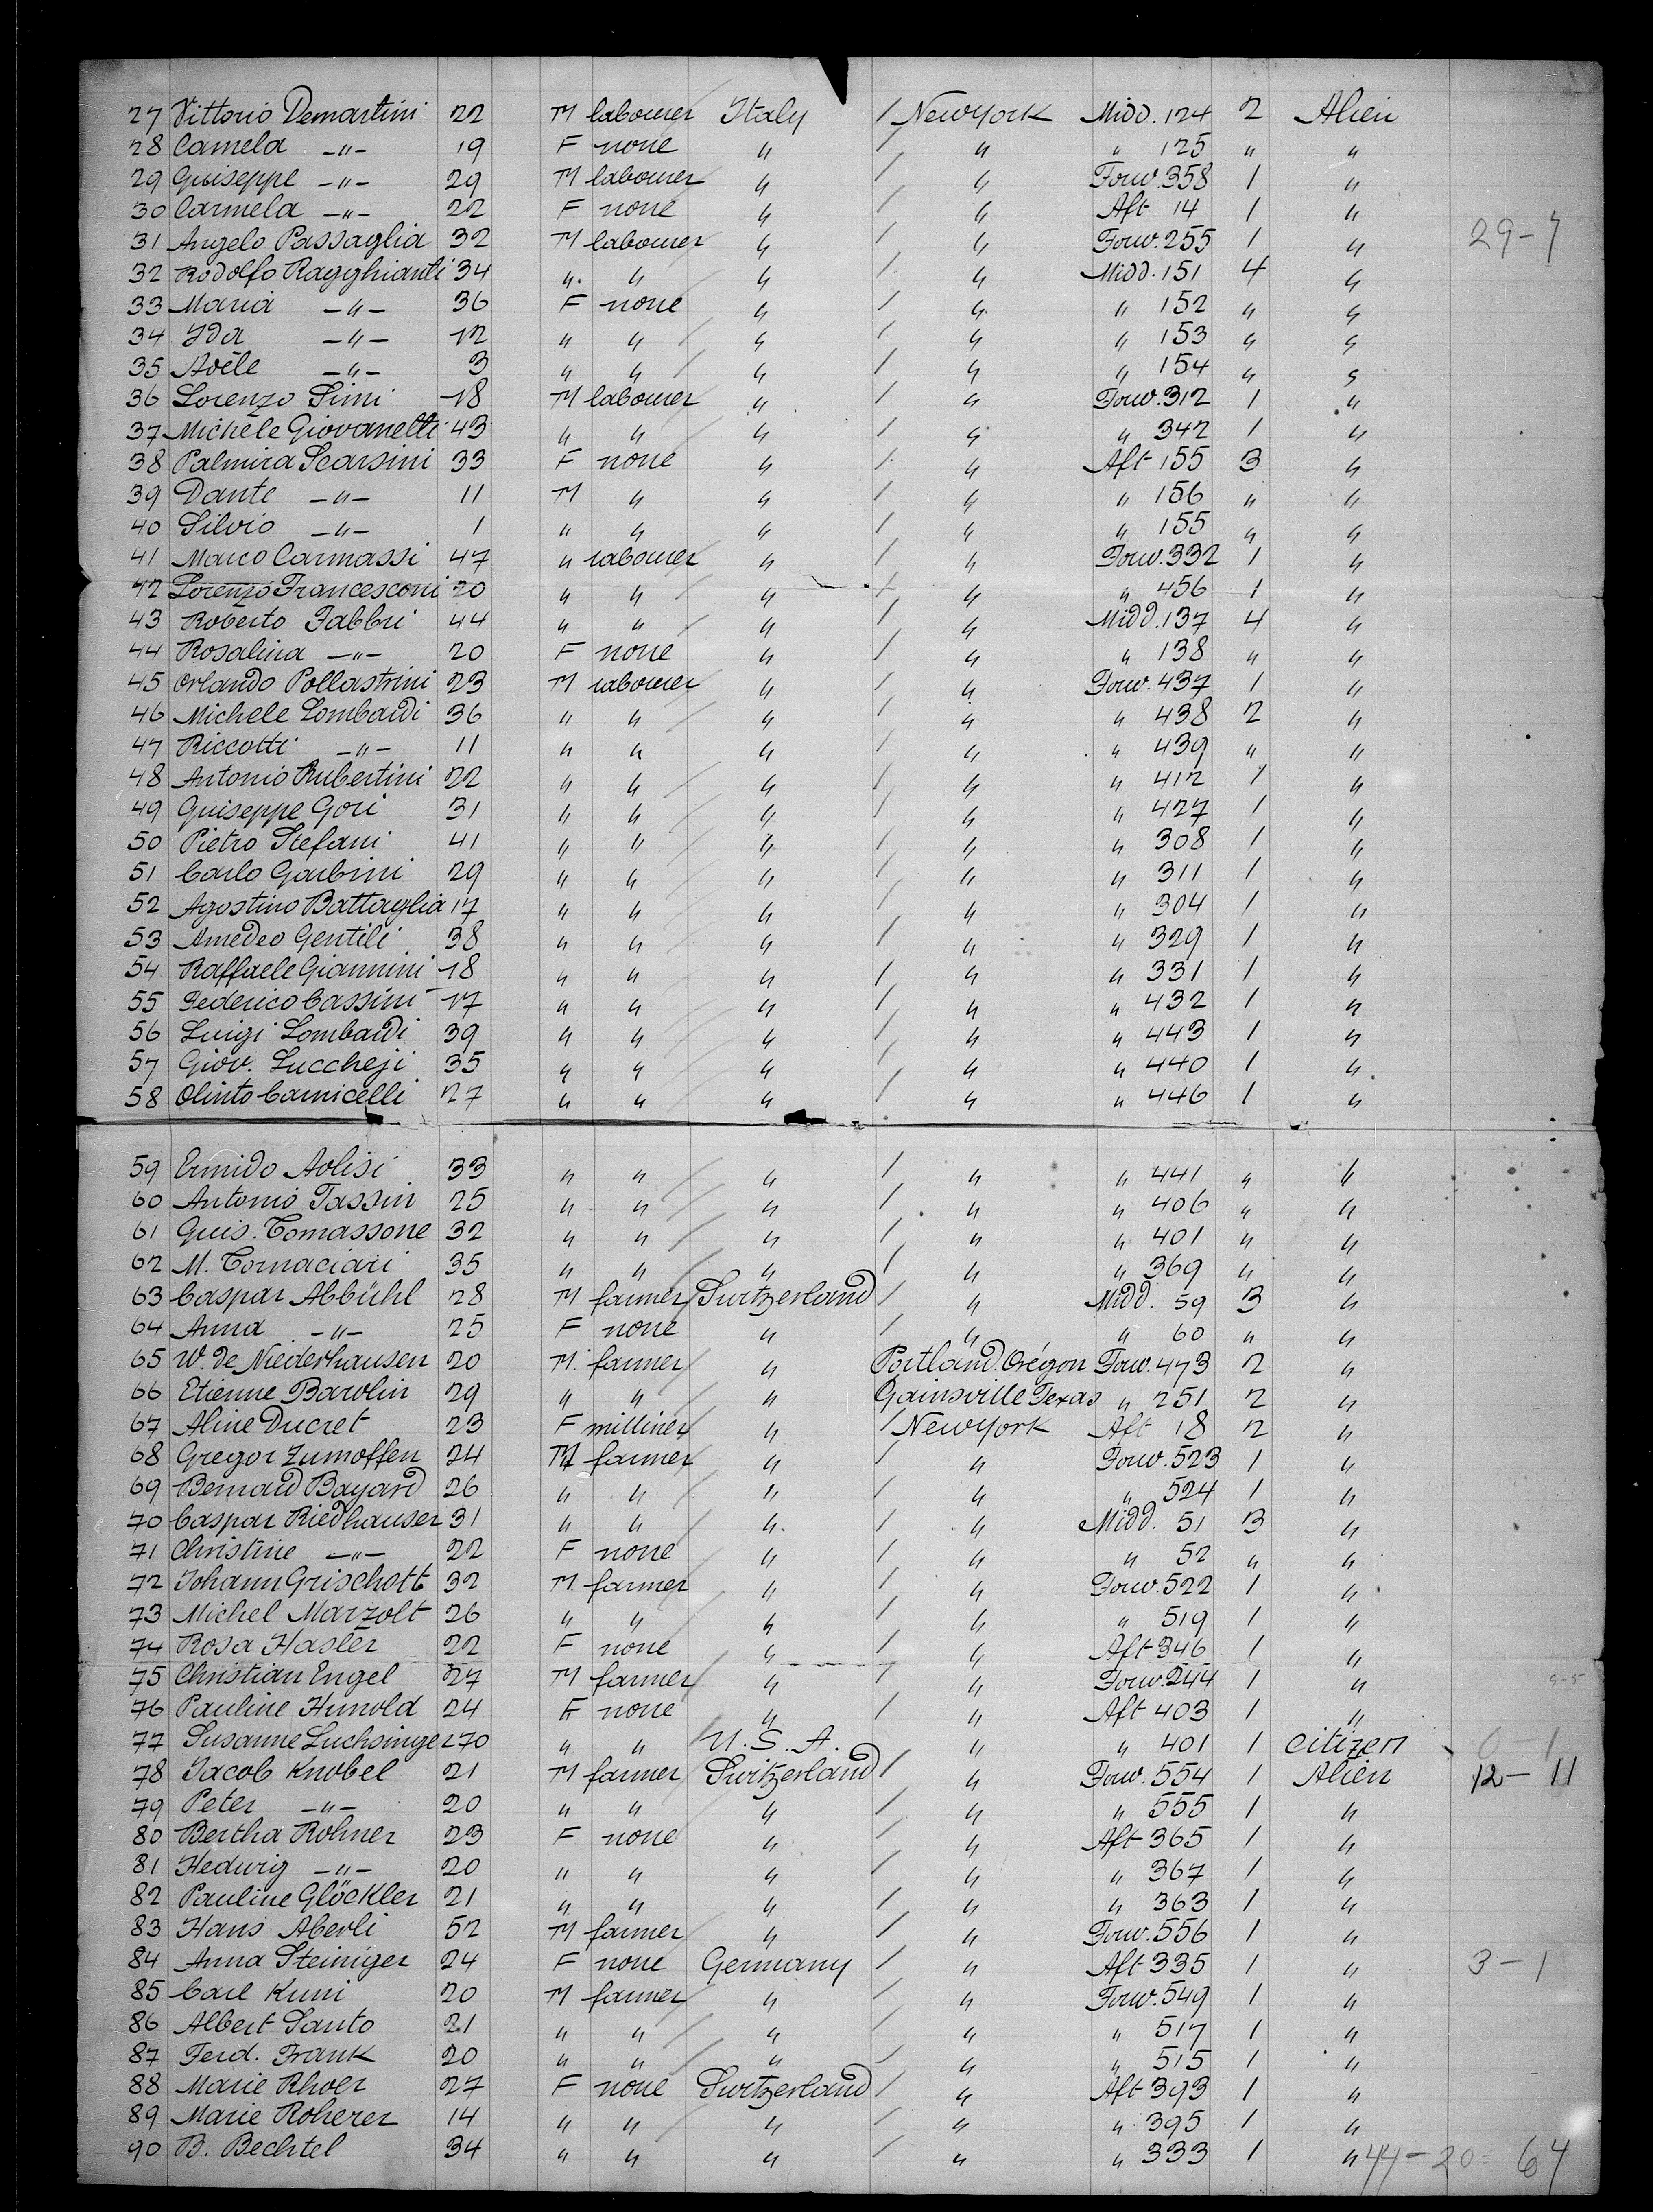 27 Vittorio Demartini 22 M labourer Italy / New York Midd. 124 2 Alien
28 Camela -"- 19 F none " / " " 125 " "
29 Guiseppe -"- 29 M labourer " / " Forw. 358 1 "
30 Carmela -"- 22 F none " / " Aft 14 1 "
31 Angelo Passaglia 32 M labourer " / " Forw. 255 1 " 29-7
32 Rodolfo Ragghianti 34 " " " / " Midd. 151 4 "
33 Maria -"- 36 F none " / " " 152 " "
34 Ida -"- 12 " " " / " " 153 " "
35 Adèle -"- 3 " " " / " " 154 " "
36 Lorenzo Simi 18 M labourer " / " Forw. 312 1 "
37 Michele Giovanetti 43 " " " / " " 342 1 "
38 Palmira Scarsini 33 F none " / " Aft 155 3 "
39 Dante -"- 11 M " " / " " 156 " "
40 Silvio -"- 1 " " " / " " 155 " "
41 Marco Carmassi 47 " labourer " / " Forw. 332 1 "
42 Lorenzo Francesconi 20 " " " / " " 456 1 "
43 Roberto Fabbri 44 " " " / " Midd. 137 4 "
44 Rosalina -"- 20 F none " / " " 138 " "
45 Orlando Pollastrini 23 M labourer " / " Forw. 437 1 "
46 Michele Lombardi 36 " " " / " " 438 2 "
47 Riccotti -"- 11 " " " / " " 439 " "
48 Antonio Rubertini 22 " " " / " " 412 1 "
49 Guiseppe Gori 31 " " " / " " 427 1 "
50 Pietro Stefani 41 " " " / " " 308 1 "
51 Carlo Garbini 29 " " " / " " 311 1 "
52 Agostino Battaglia 17 " " " / " " 304 1 "
53 Amedeo Gentili 38 " " " / " " 329 1 "
54 Raffaele Giannini 18 " " " / " " 331 1 "
55 Federico Cassini 17 " " " / " " 432 1 "
56 Luigi Lombardi 39 " " " / " " 443 1 "
57 Giov. Luccheji 35 " " " / " " 440 1 "
58 Olinto Carnicelli 27 " " " / " " 446 1 "
59 Ermido Aolisi 33 " " " / " " 441 " "
60 Antonio Tassin 25 " " " / " " 406 " "
61 Guis. Tomassone 32 " " " / " " 401 " "
62 M. Tornaciari 35 " " " / " " 369 " "
63 Caspar Abbühl 28 M farmer Switzerland / " Midd. 59 3 "
64 Anna -"- 25 F none " / " " 60 " "
65 W. de Niederhausen 20 M. farmer " Portland. Orégon Forw. 473 2 "
66 Etienne Barolin 29 " " " Gainsville Texas " 251 2 "
67 Aline Ducret 23 F milliner " / New York Aft 18 2 "
68 Gregor Zumoffen 24 M farmer " / " Forw. 523 1 "
69 Bernard Bayard 26 " " " / " " 524 1 "
70 Caspar Riedhauser 31 " " " / " Midd. 51 3 "
71 Christine -"- 22 F none " / " " 52 " "
72 Johann Grischott 32 M. farmer " / " Forw. 522 1 "
73 Michel Marzolt 26 " " " / " " 519 1 "
74 Rosa Hasler 22 F none " / " Aft 346 1 "
75 Christian Engel 27 M farmer " / " Forw. 244 1 " 9-5
76 Pauline Hunold 24 F none " / " Aft 403 1 "
77 Susanne Luchsinger 70 " " U. S. A. " " 401 1 citizen 0 1
78 Jacob Knobel 21 M farmer Switzerland / " Forw. 554 1 Alien 12-11
79 Peter -"- 20 " " " / " " 555 1 "
80 Bertha Rohner 23 F none " / " Aft 365 1 "
81 Hedwig -"- 20 " " " / " " 367 1 "
82 Pauline Glöckler 21 " " " / " " 363 1 "
83 Hans Aberli 52 M farmer " / " Forw. 556 1 "
84 Anna Steiniger 24 F none Germany / " Aft 335 1 " 3-1
85 Carl Kuni 20 M farmer " / " Forw. 549 1 "
86 Albert Santo 21 " " " / " " 517 1 "
87 Ferd. Frank 20 " " " / " " 515 1 "
88 Marie Rhoer 27 F none Switzerland / " Aft 393 1 "
89 Marie Roherer 14 " " " / " " 395 1 "
90 B. Bechtel 34 " " " / " " 333 1 " 44-20=64